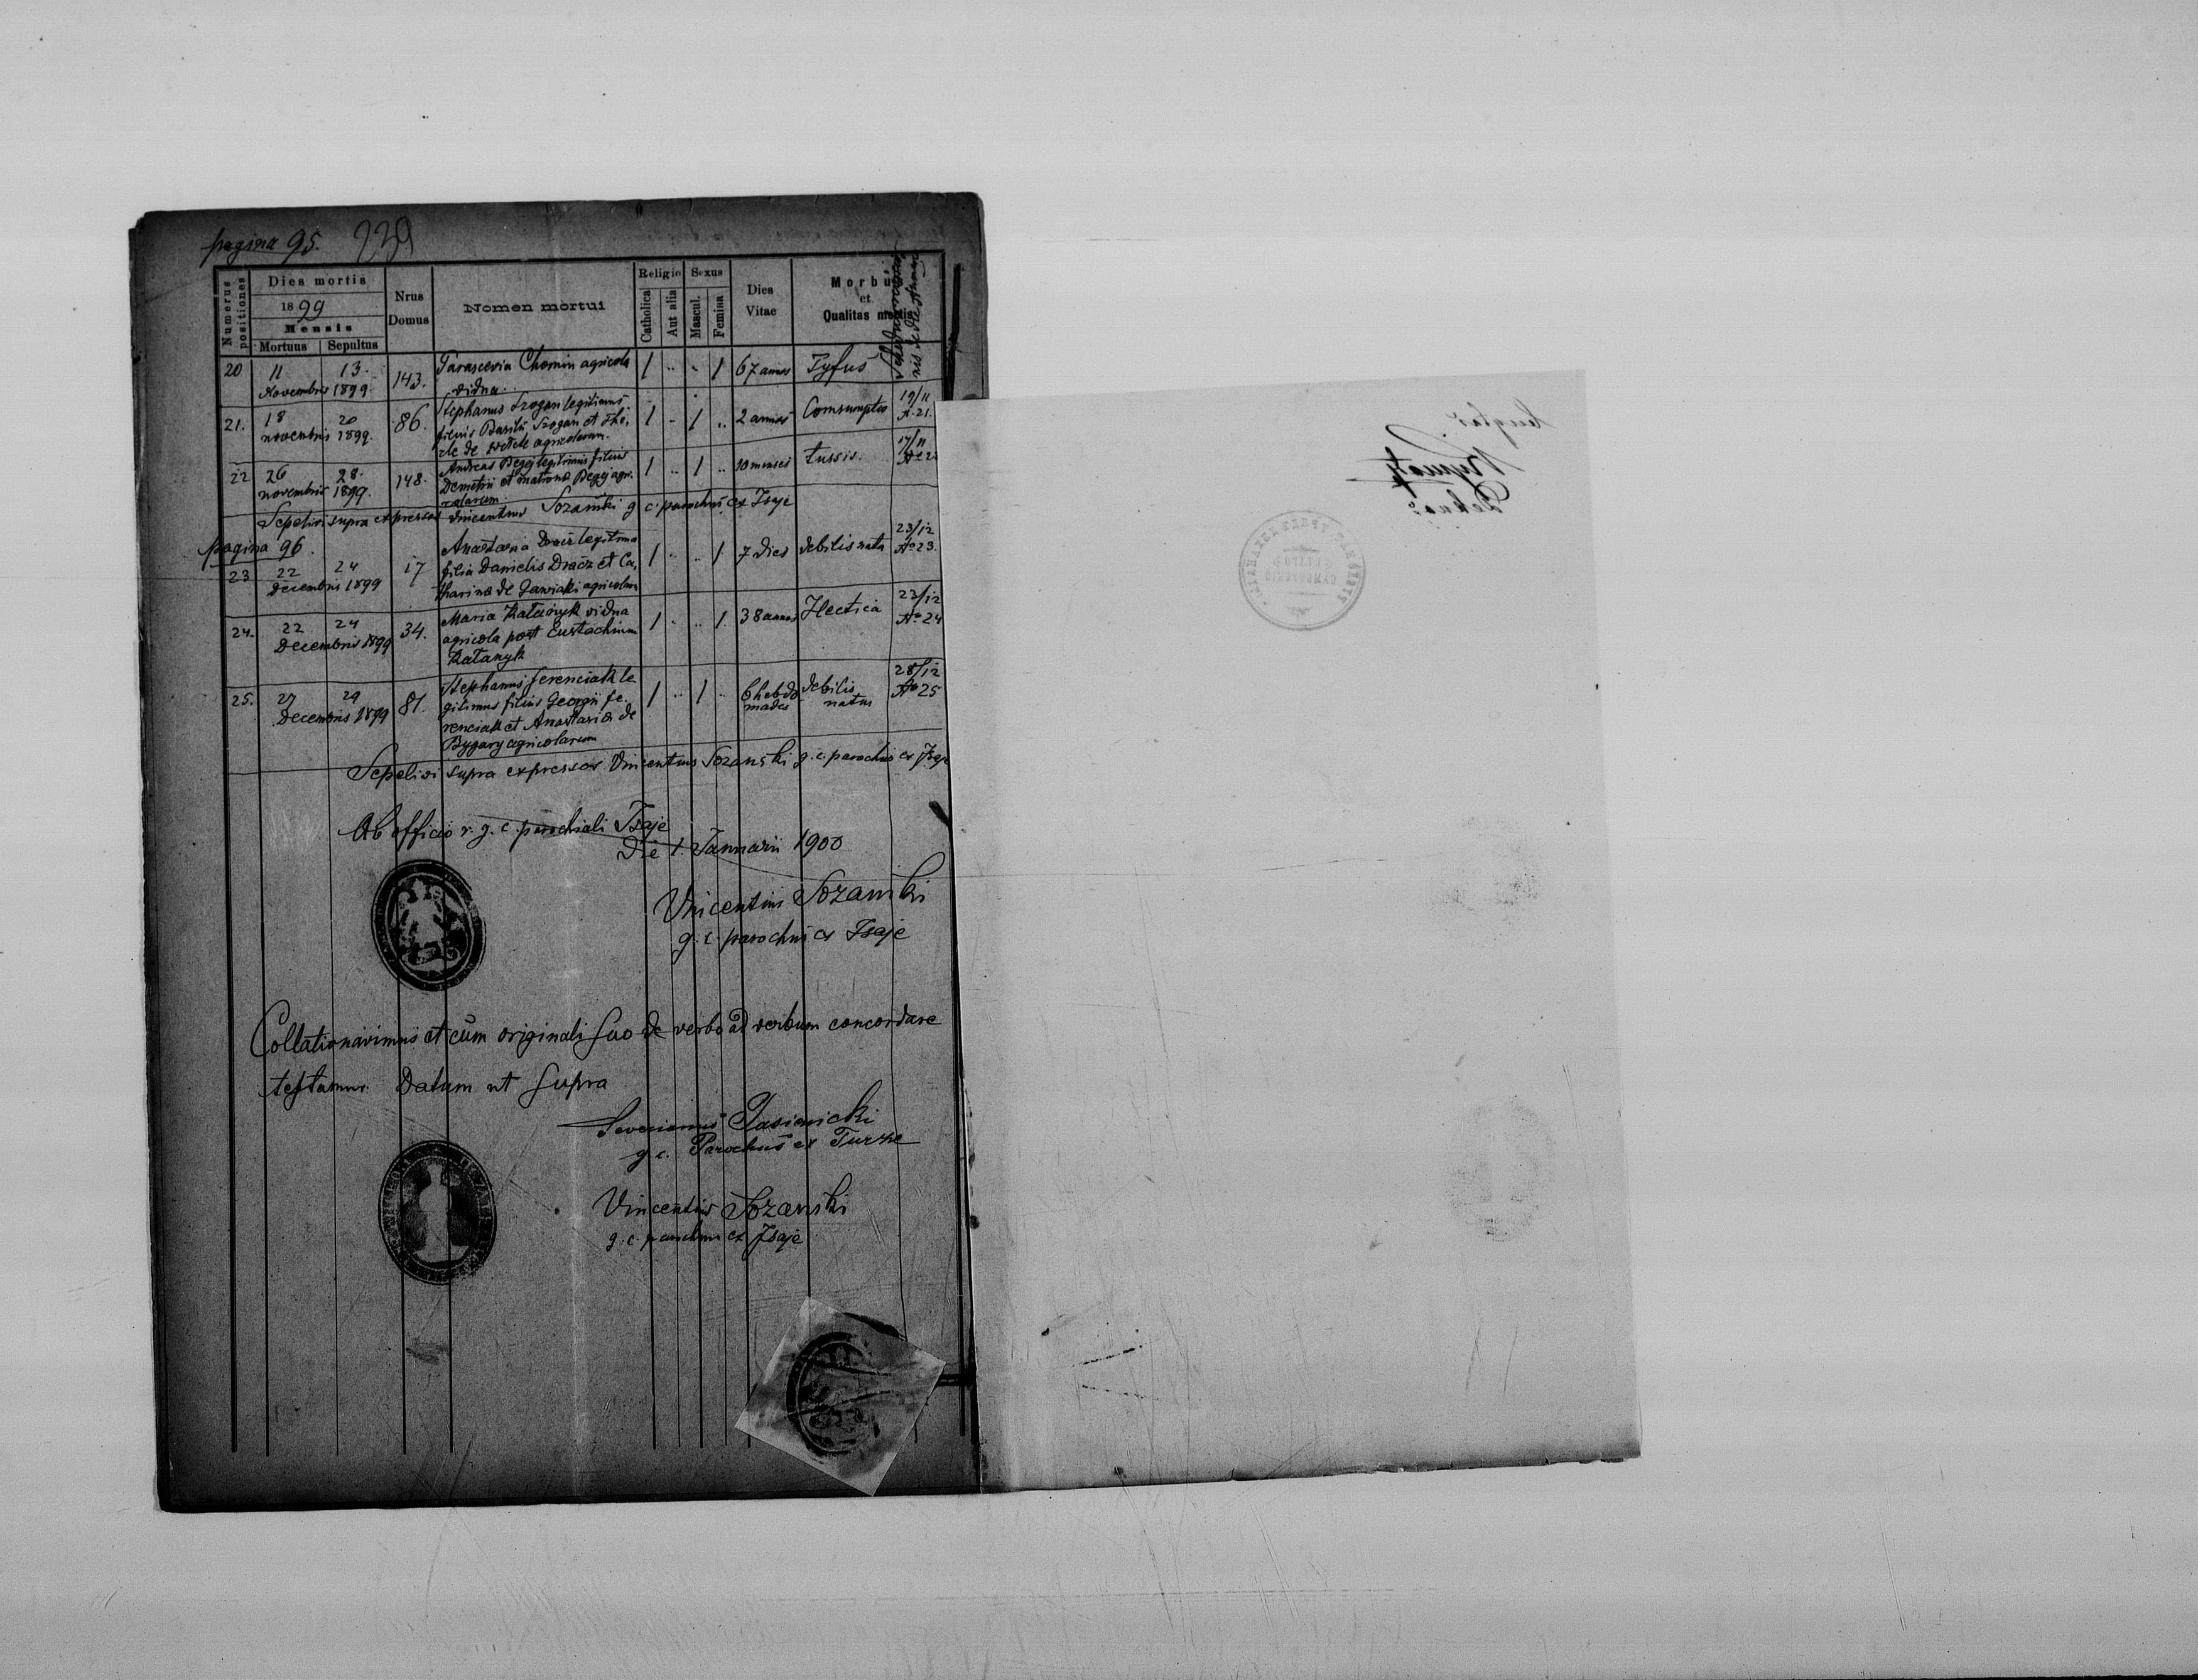 pagina 95. 239
Numerus positiones
Dies mortis
1899
Mensis
Mortuus Sepultus
Nrus Domus
Nomen mortui
Religio
Catholica Aut alia
Sexus
Mascul. Femina
Dies Vitae
Morbus et Qualitas mortis
20 11 13. 143. Parascevia Chomin agricola 1 .. .. 1 67 annos Tyfus
Novembris 1899. vidua.
21. 18 20 86. Stephanus Szogan legitimus 1 .. 1 .. 2 annos Comsumptio 19/11
novembris 1899. filius Basilii Szogan et The, № 21.
cle de agricolarum.
22 26 28. 148. Andreas Begej legitimus filius 1 .. 1 .. 10 menses tussis. 17/11
novembris 1899. Demetrii et Matrona Begej agri-
colarum.
Sepelivi supra expressos Vincentius Sozański g. c. parochus ex Isaje
pagina 96.
23 22 24 17 Anastasia Dracz legitima 1 .. .. 1. 7 dies debilis nata 23/12
decembris 1899 filia Danielis Dracz et Ca, № 23.
tharina de Gawiaki agricolarum
24. 22 24 34. Maria Katanyk vidua 1 .. .. 1. 38 annos Hectica 23/12
Decembris 1899 agricola post Eustachium № 24
Katanyk
25. 27 29 81. Stephanus Ferenciak le 1 .. 1 .. 6 hebdo debilis 28/12
Decembris 1899 gitimus filius Georgii Fe- mades natus № 25
renciak et Anastasia de
Bygary agricolarum
Sepelivi supra expressos Vincentius Sozański g. c. parochus ex Isaje
Ab officio r. g. c. parochiali Isaje
Die 1. Januarii 1900
Vincentius Sozański
g. c. parochus ex Isaje
Collationavimus et cum originali suo de verbo ad verbum concordare
testamur. Datum ut supra
Severianus Jasienicki
g. c. Parochus ex Turze
Vincentius Sozański
g. c. parochus ex Isaje